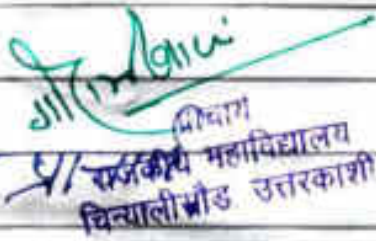 प्राचार्य
राजकीय महाविद्यालय
चिन्यालीसौड उत्तरकाशी